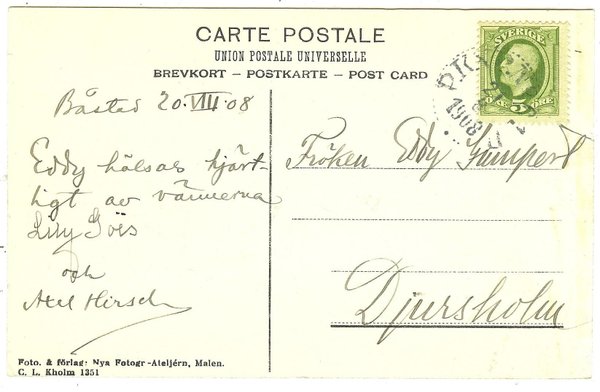 CARTE POSTALE
UNION POSTALE UNIVERSELLE
BREVKORT – POSTKARTE – POST CARD
SVERIGE
5 ÖRE 5
PKXP
21 8
1908
Båstad 20.VIII.08
Eddy hälsas hjärt-
ligt av vännerna
Lily Göes
och
Axel Hirsch
Fröken Eddy Gumpert
Djursholm
Foto. & förlag: Nya Fotogr-Ateljérn, Malen.
C. L. Kholm 1351